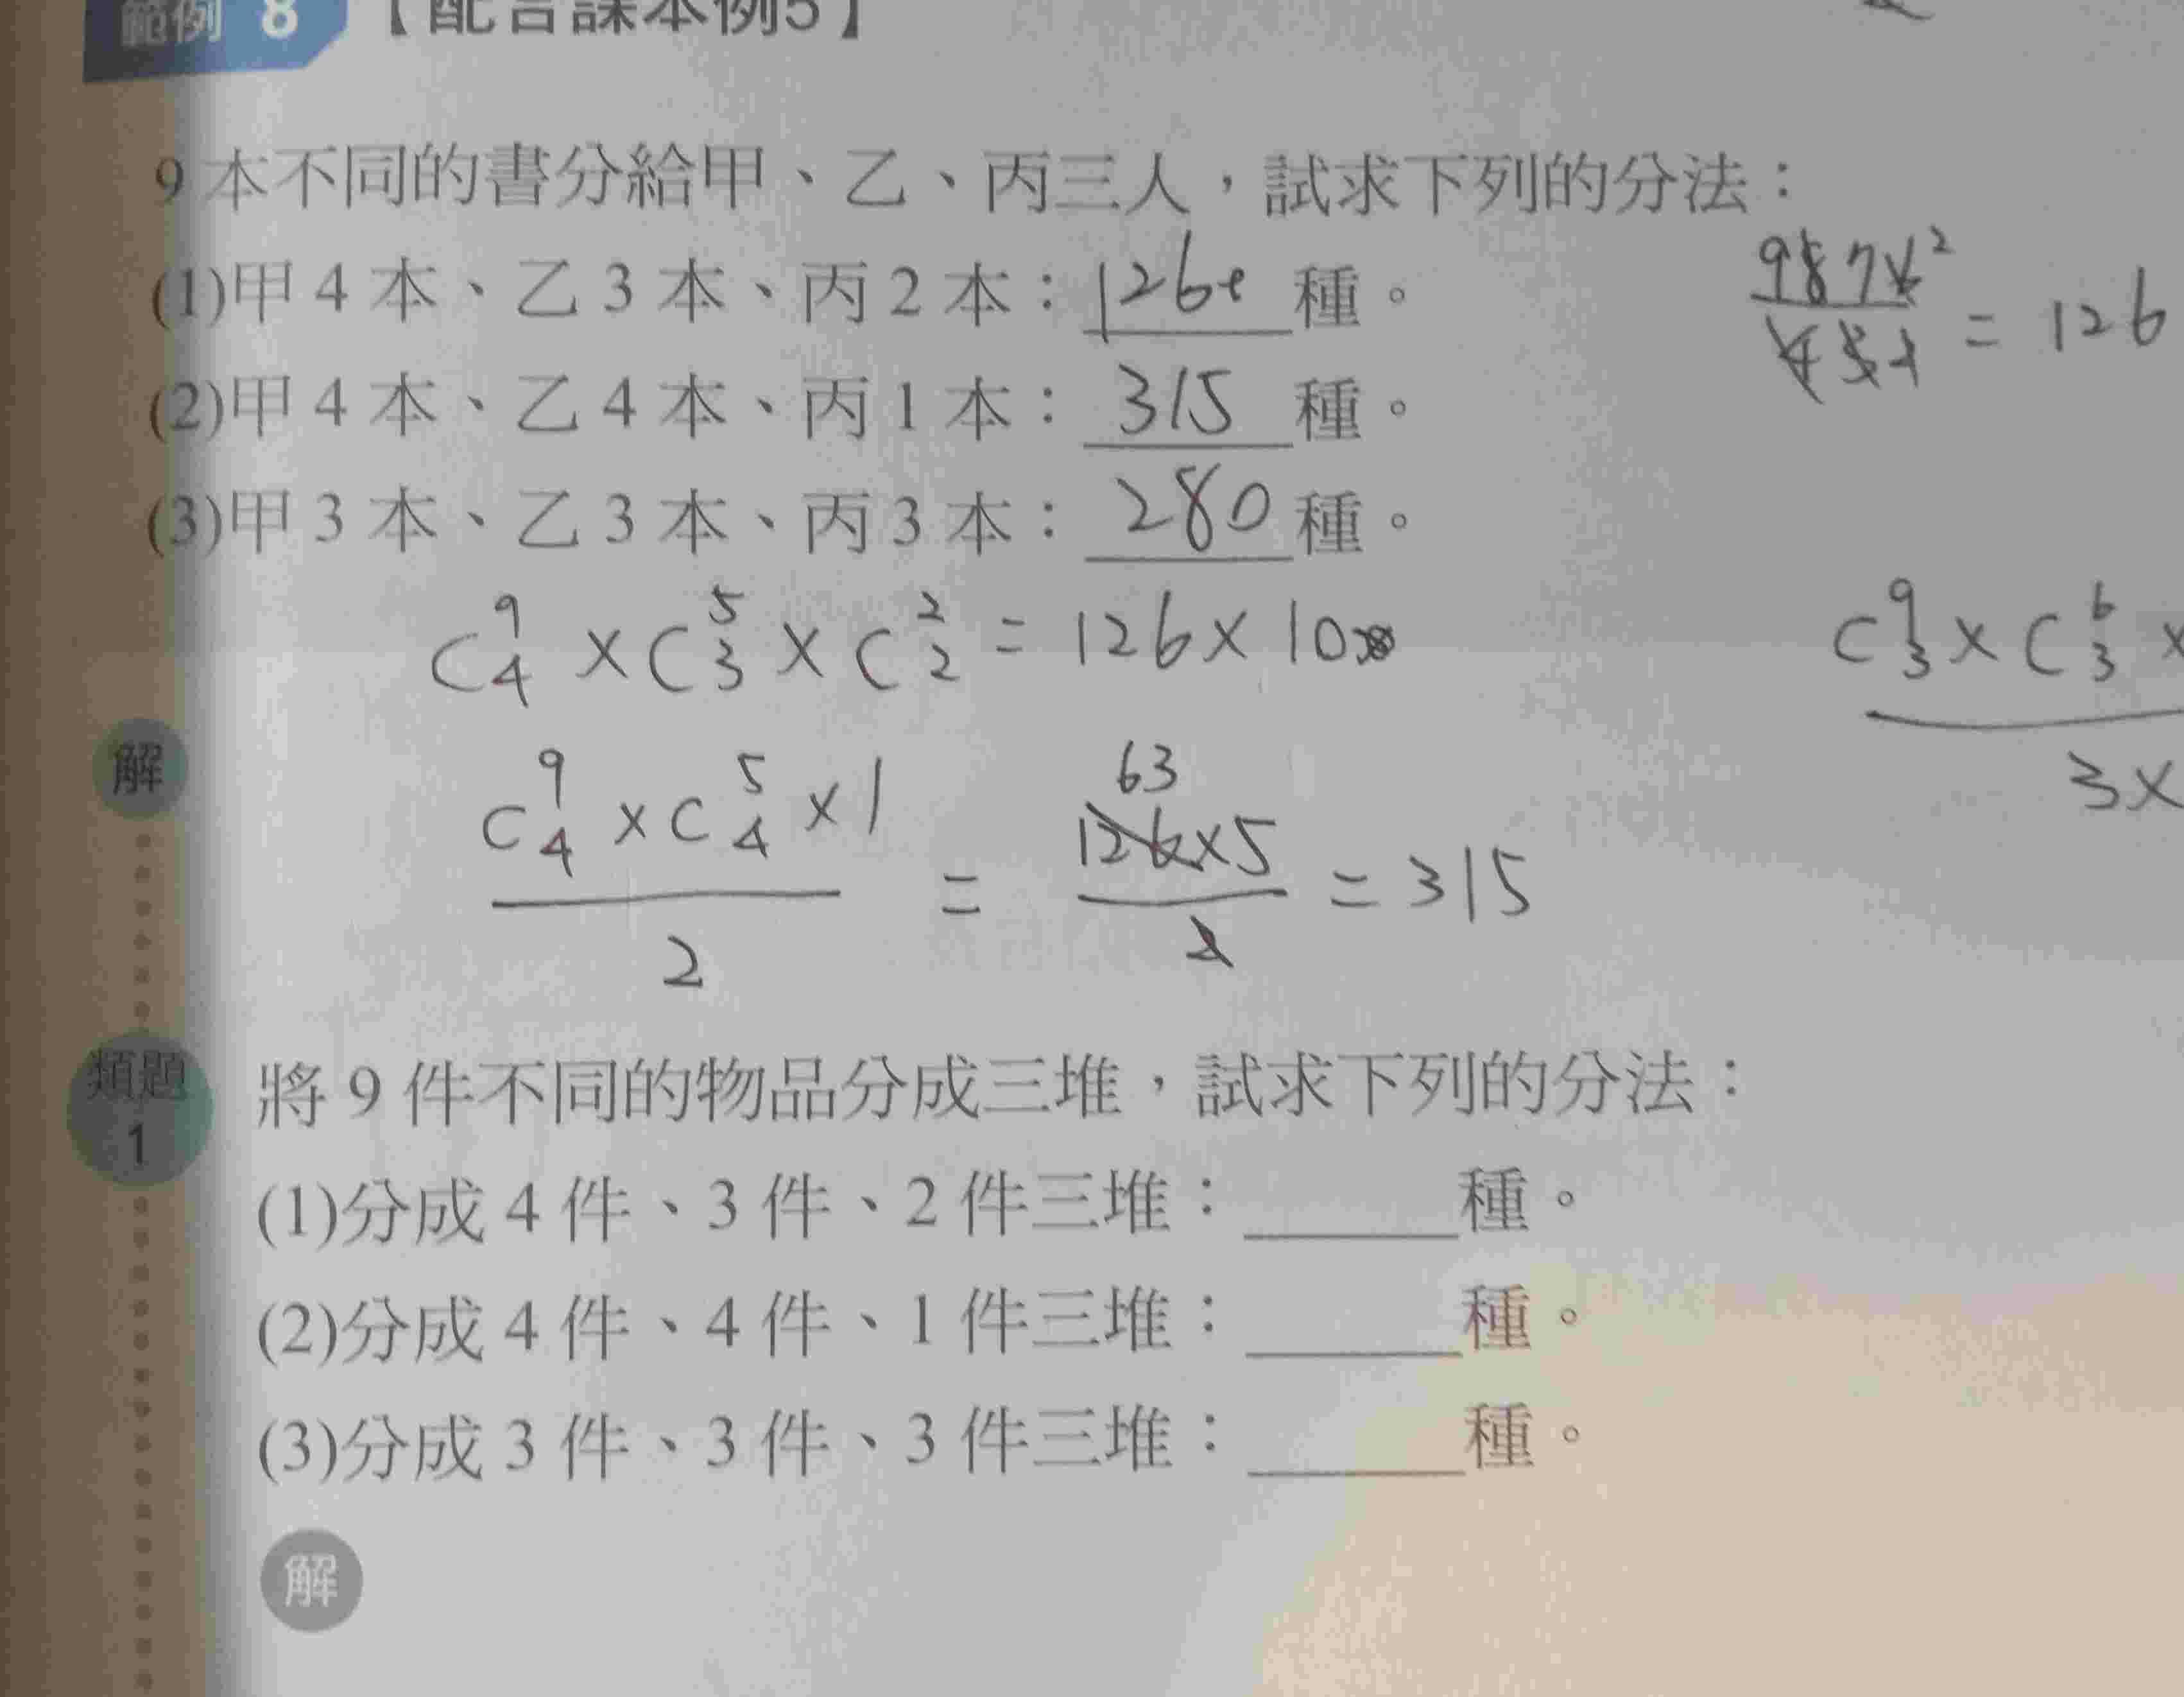 範例 8 【配合課本例5】
9 本不同的書分給甲、乙、丙三人，試求下列的分法：
(1)甲 4 本、乙 3 本、丙 2 本：1260 種。
(2)甲 4 本、乙 4 本、丙 1 本：315 種。
(3)甲 3 本、乙 3 本、丙 3 本：280 種。
987
= 126
C⁹₄ × C⁵₃ × C²₂ = 126 × 10
C⁹₃ × C⁶₃ ×
3×
解
C⁹₄ × C⁵₄ × 1
2
=
63
126×5
2
= 315
類題
1
將 9 件不同的物品分成三堆，試求下列的分法：
(1)分成 4 件、3 件、2 件三堆：______種。
(2)分成 4 件、4 件、1 件三堆：______種。
(3)分成 3 件、3 件、3 件三堆：______種。
解